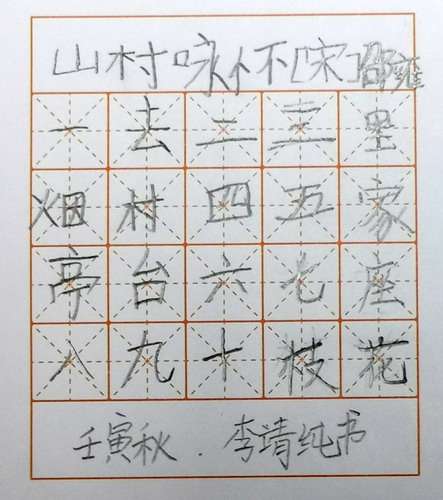 山村咏怀[宋]邵雍
一去二三里
烟村四五家
亭台六七座
八九十枝花
壬寅秋．李靖纯书